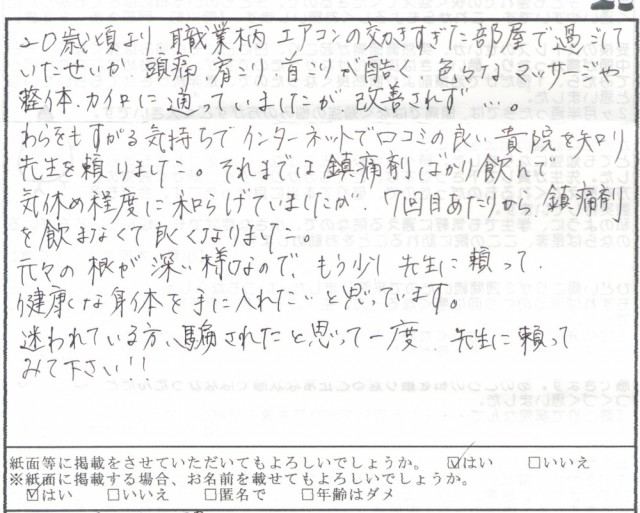 20歳頃より、職業柄エアコンの効きすぎた部屋で過ごして
いたせいか頭痛、肩こり、首こりが酷く、色々なマッサージや
整体、カイロに通っていましたが改善されず…。
わらをもすがる気持ちでインターネットで口コミの良い貴院を知り
先生を頼りました。それまでは鎮痛剤ばかり飲んで
気休め程度に和らげていましたが、7回目あたりから鎮痛剤
を飲まなくて良くなりました。
元々の根が深い様なので、もう少し先生に頼って、
健康な身体を手に入れたいと思っています。
迷われている方、騙されたと思って一度、先生に頼って
みて下さい!!
紙面等に掲載をさせていただいてもよろしいでしょうか。 ☑はい □いいえ
※紙面に掲載する場合、お名前を載せてもよろしいでしょうか。
☑はい □いいえ □匿名で □年齢はダメ